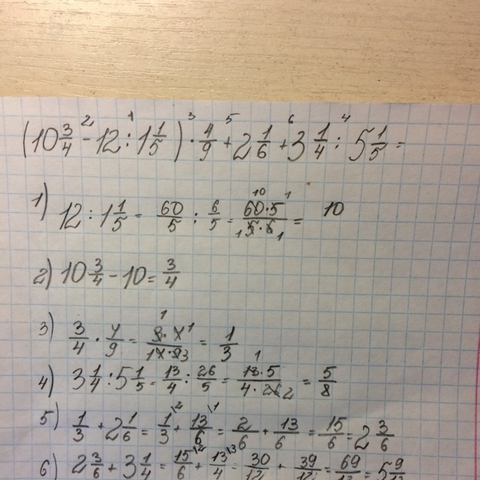 (10 3/4 - 12 : 1 1/5) · 4/9 + 2 1/6 + 3 1/4 : 5 1/5 =
1) 12 : 1 1/5 - 60/5 : 6/5 - 60·5/5·6 = 10
2) 10 3/4 - 10 = 3/4
3) 3/4 · 4/9 = 3·4/4·9 = 1/3
4) 3 1/4 : 5 1/5 = 13/4 : 26/5 = 13·5/4·26 = 5/8
5) 1/3 + 2 1/6 = 1/3 + 13/6 = 2/6 + 13/6 = 15/6 = 2 3/6
6) 2 3/6 + 3 1/4 = 15/6 + 13/4 = 30/12 + 39/12 = 69/12 = 5 9/12